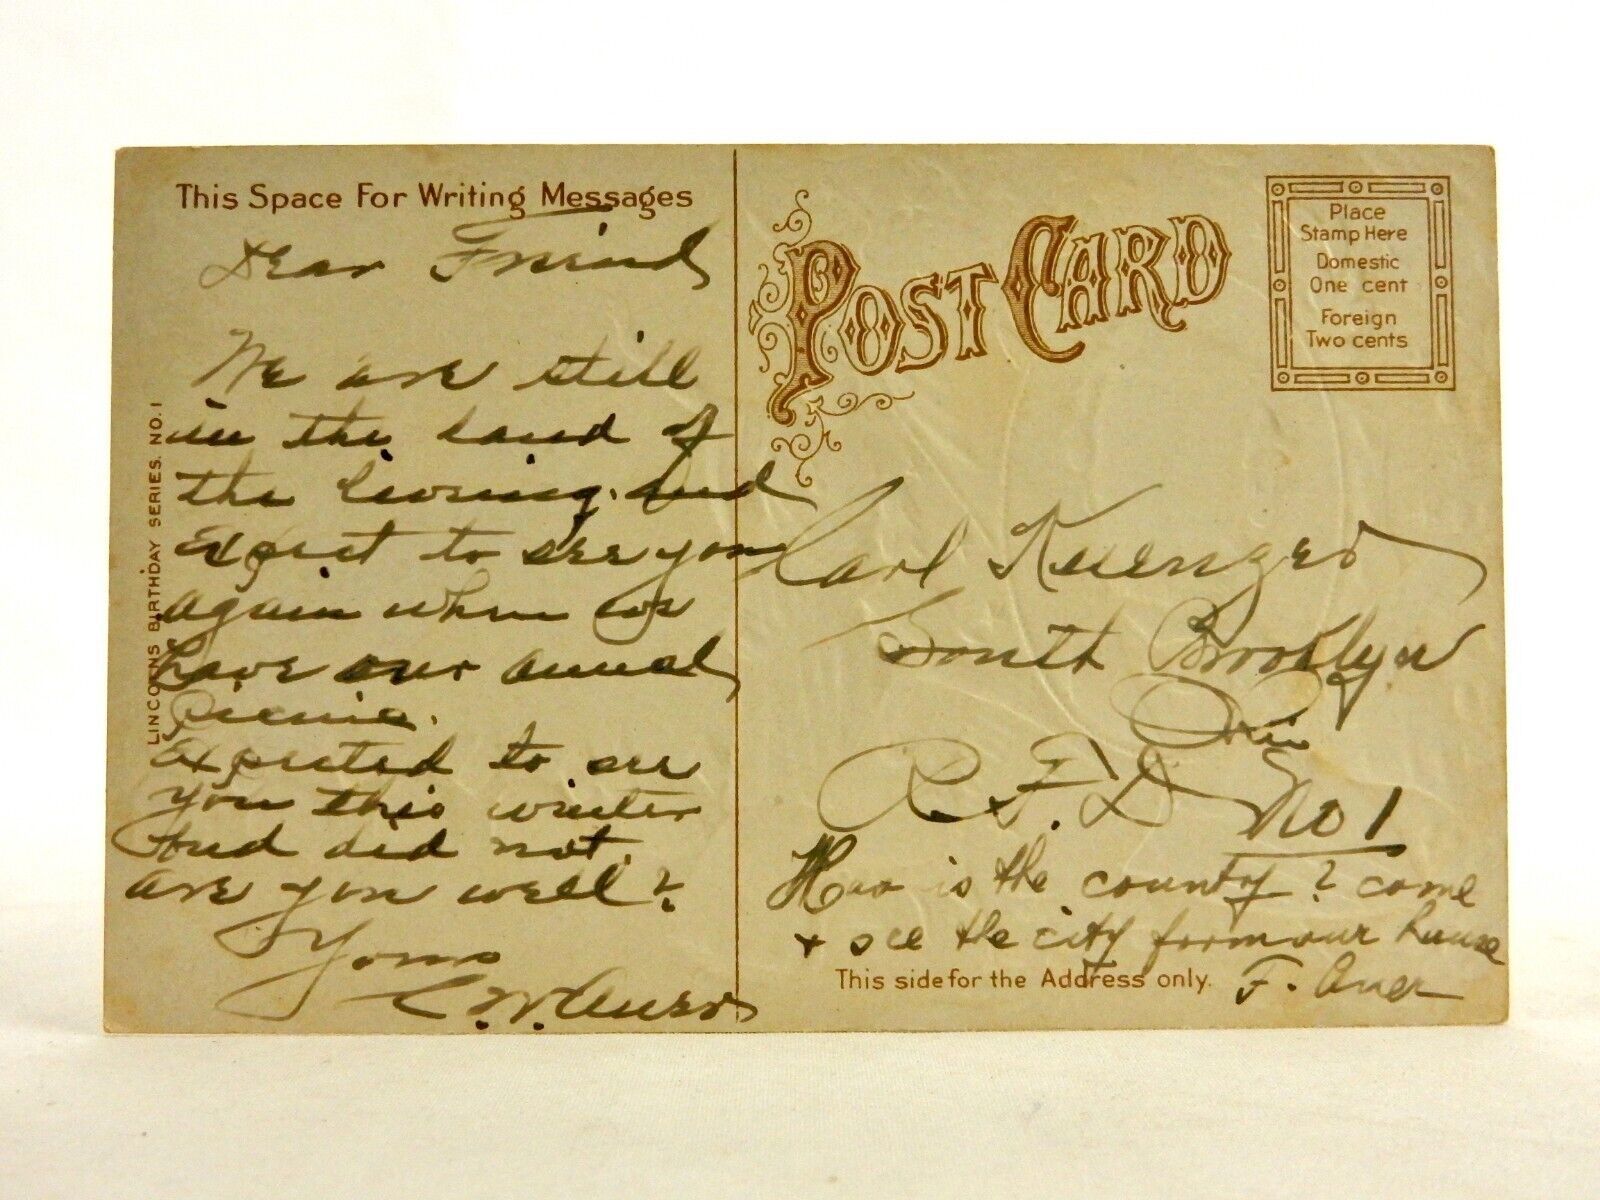 This Space For Writing Messages
Dear Friend
We are still
in the land of
the living. And
Expect to see you
again when we
have our annual
Picnic.
Expected to see
you this winter
And did not.
are you well?
Yours
C. W. Auer
LINCOLNS BIRTHDAY SERIES. NO. 1
POST CARD
Place
Stamp Here
Domestic
One cent
Foreign
Two cents
Carl
South Brooklyn
Ohio
R. F. D.
No 1
How is the country? come
+ see the city from our house
F. Auer
This side for the Address only.